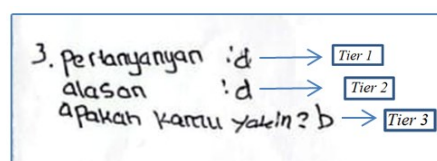 3. pertanyanyan : d → Tier 1
alasan : d → Tier 2
apakah kamu yakin? b → Tier 3